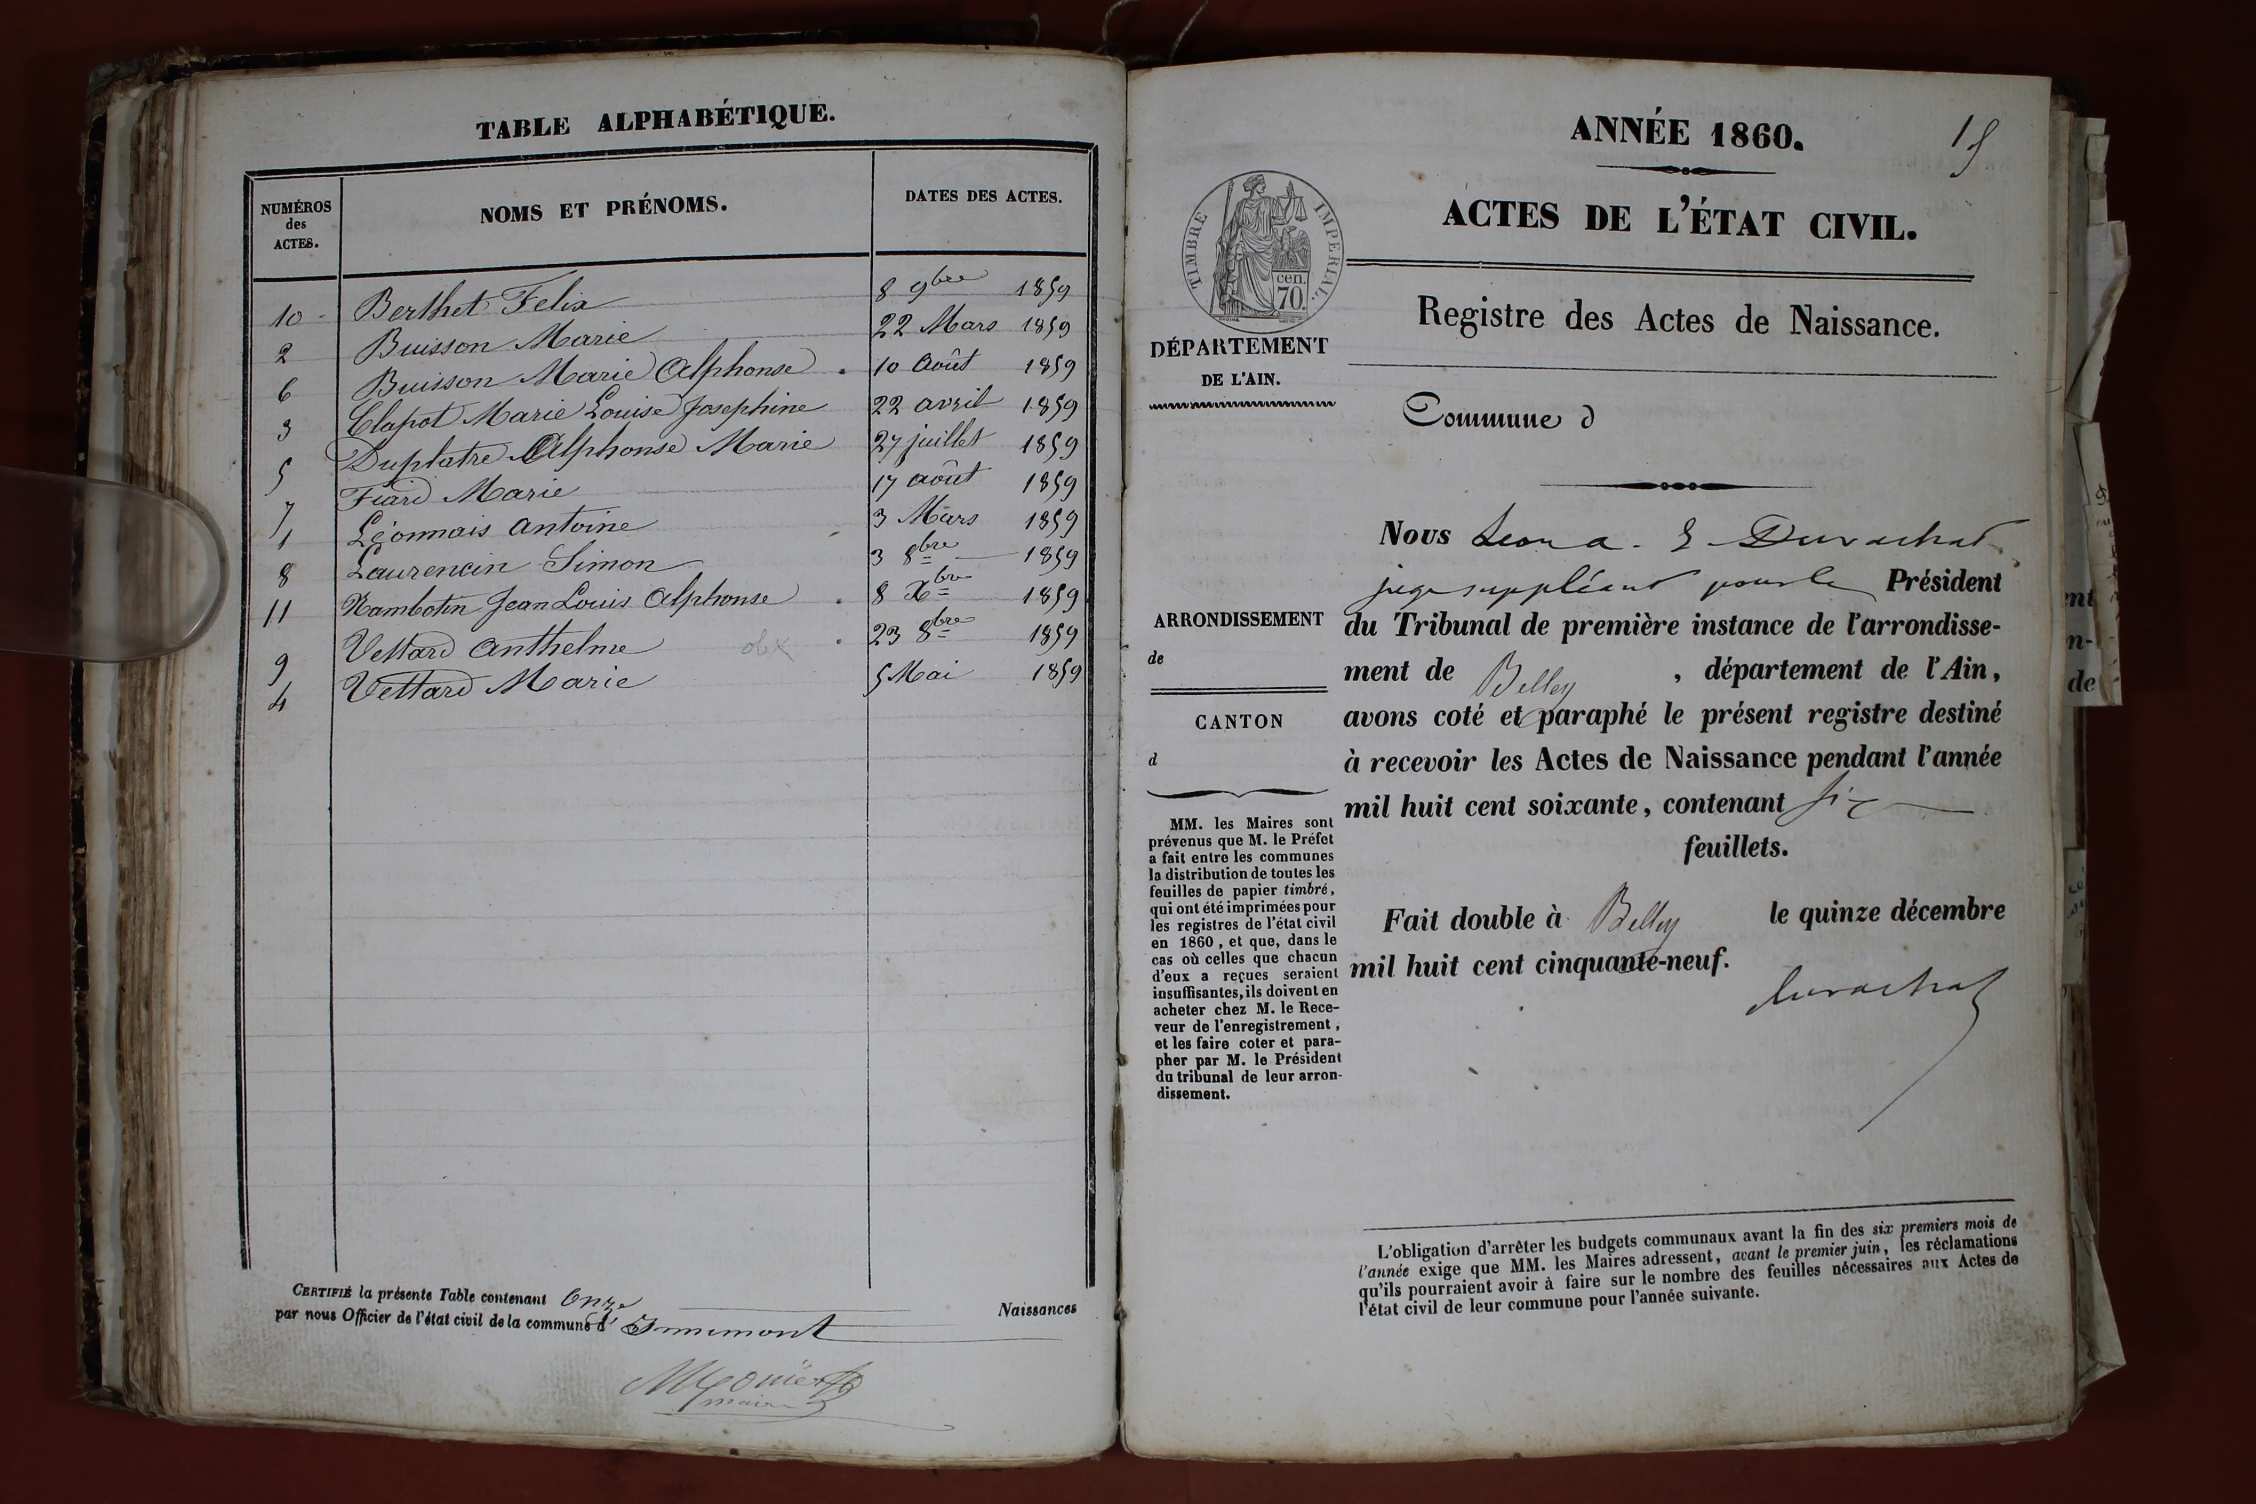 TABLE ALPHABÉTIQUE.
NUMÉROS
des
ACTES.
NOMS ET PRÉNOMS.
DATES DES ACTES.
10 Berthet Felix 8 9bre 1859
2 Buisson Marie 22 Mars 1859
6 Buisson Marie Alphonse 10 Août 1859
3 Clapot Marie Louise Josephine 22 avril 1859
5 Duplatre Alphonse Marie 27 juillet 1859
7 Fiard Marie 17 août 1859
1 Léonnais Antoine 3 Mars 1859
8 Laurencin Simon 3 8bre 1859
11 Nambotin Jean Louis Alphonse 8 Xbre 1859
9 Vettard Anthelme 23 8bre 1859
4 Vettard Marie 5 Mai 1859
CERTIFIÉ la présente Table contenant Onze Naissances
par nous Officier de l'état civil de la commune d' Innimont
maire
ANNÉE 1860.
ACTES DE L'ÉTAT CIVIL.
TIMBRE IMPERIAL.
cen.
70.
Registre des Actes de Naissance.
DÉPARTEMENT
DE L'AIN.
Commune d
ARRONDISSEMENT
de
CANTON
d
MM. les Maires sont
prévenus que M. le Préfet
a fait entre les communes
la distribution de toutes les
feuilles de papier timbré,
qui ont été imprimées pour
les registres de l'état civil
en 1860, et que, dans le
cas où celles que chacun
d'eux a reçues seraient
insuffisantes, ils doivent en
acheter chez M. le Rece-
veur de l'enregistrement,
et les faire coter et para-
pher par M. le Président
du tribunal de leur arron-
dissement.
Nous Durachat
juge suppléant pour le Président
du Tribunal de première instance de l'arrondisse-
ment de Belley, département de l'Ain,
avons coté et paraphé le présent registre destiné
à recevoir les Actes de Naissance pendant l'année
mil huit cent soixante, contenant six
feuillets.
Fait double à Belley le quinze décembre
mil huit cent cinquante-neuf.
Durachat
L'obligation d'arrêter les budgets communaux avant la fin des six premiers mois de
l'année exige que MM. les Maires adressent, avant le premier juin, les réclamations
qu'ils pourraient avoir à faire sur le nombre des feuilles nécessaires aux Actes de
l'état civil de leur commune pour l'année suivante.